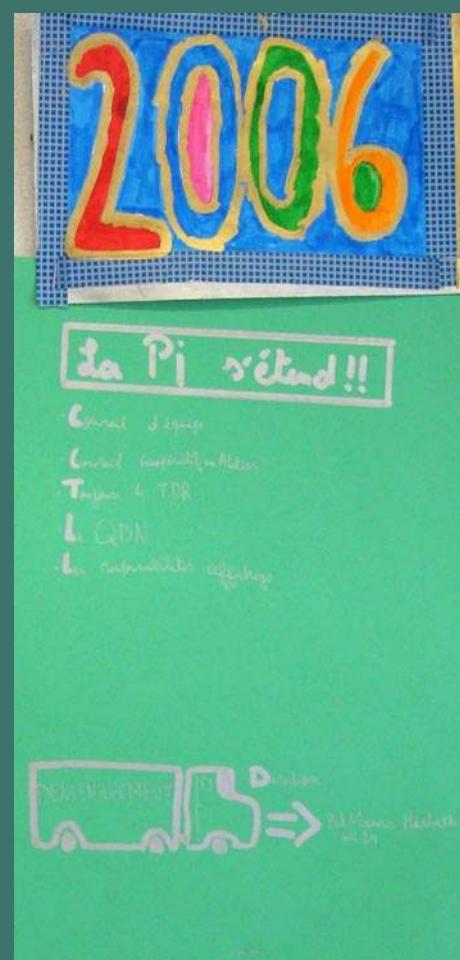 2006
La Pi s'étend !!
· Conseil d'équipe
· Conseil coopératif en Atelier
· Toujours le TDR
Le QDN
· Les responsabilités affichage
DEMENAGEMENT
Direction
Bd Maurice